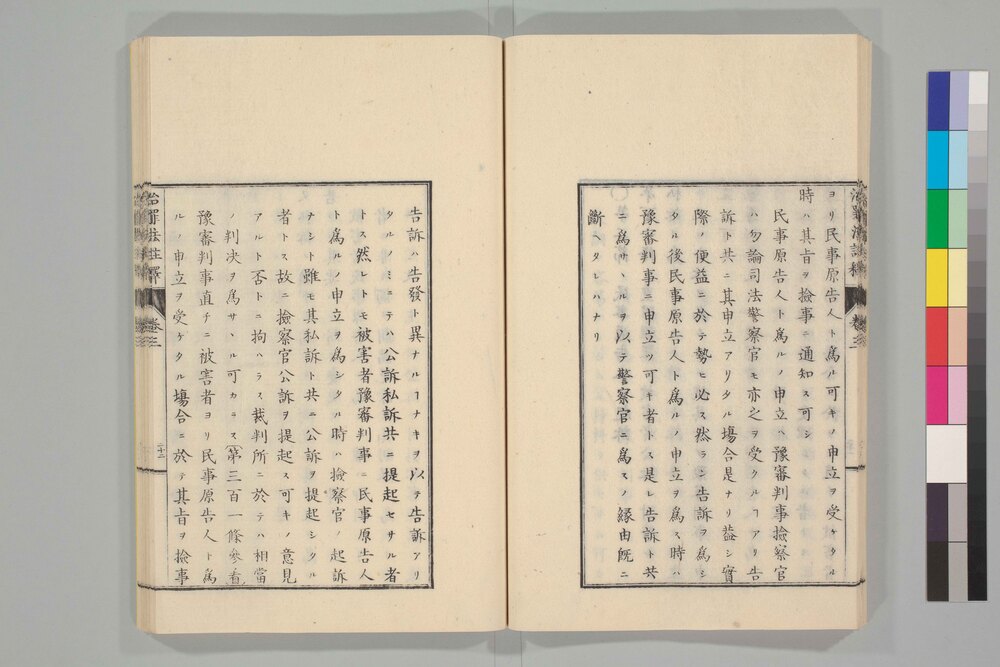 ヲリ民事原告人ト爲ル可キノ申立ヲ受ケタル
時ハ其旨ヲ撿事ニ通知ス可シ
民事原告人ト爲ルノ申立ハ豫審判事撿察官
ハ勿論司法警察官モ亦之ヲ受クルヿアリ告
訴ト共ニ其申立アリタル塲合是ナリ葢シ實
際ノ便益ニ於テ勢ヒ必ス然ラン告訴ヲ爲シ
タル後民事原告人ト爲ルノ申立ヲ爲ス時ハ
豫審判事ニ申立ツ可キ者トス是レ告訴ト共
ニ爲サヽルヲ以テ警察官ニ爲スノ縁由既ニ
斷ヘタレハナリ
治罪法註釋
卷三
告訴ハ告發ト異ナルヿナキヲ以テ告訴アリ
タルノミニテハ公訴私訴共ニ提起セサル者
トス然レトモ被害者豫審判事ニ民事原告人
ト爲ルノ申立ヲ爲シタル時ハ撿察官ノ起訴
ナシト雖モ其私訴ト共ニ公訴ヲ提起シタル
者トス故ニ撿察官公訴ヲ提起ス可キノ意見
アルト否トニ拘ハラス裁判所ニ於テハ相當
ノ判决ヲ爲サヽル可カラス(第三百一條參看
豫審判事直チニ被害者ヨリ民事原告人ト爲
ルノ申立ヲ受ケタル塲合ニ於テ其旨ヲ撿事
治罪法註釋
卷三